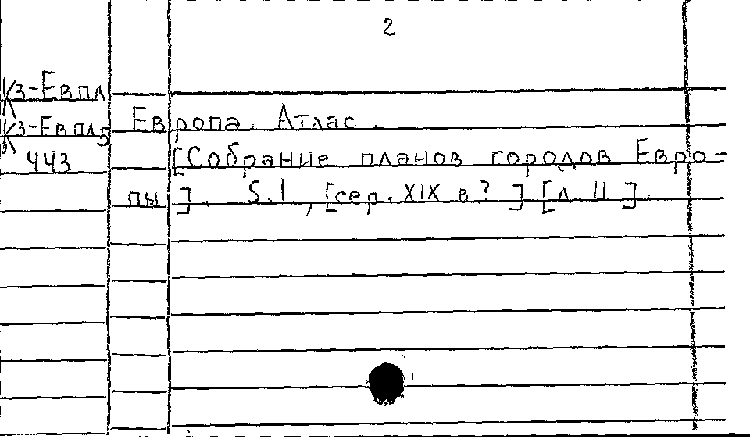 2
К3-Евпл
К3-Евпл5
443
Европа. Атлас.
[Собрание планов городов Евро-
пы]. S.l, [сер. XIX в?] [л 11].